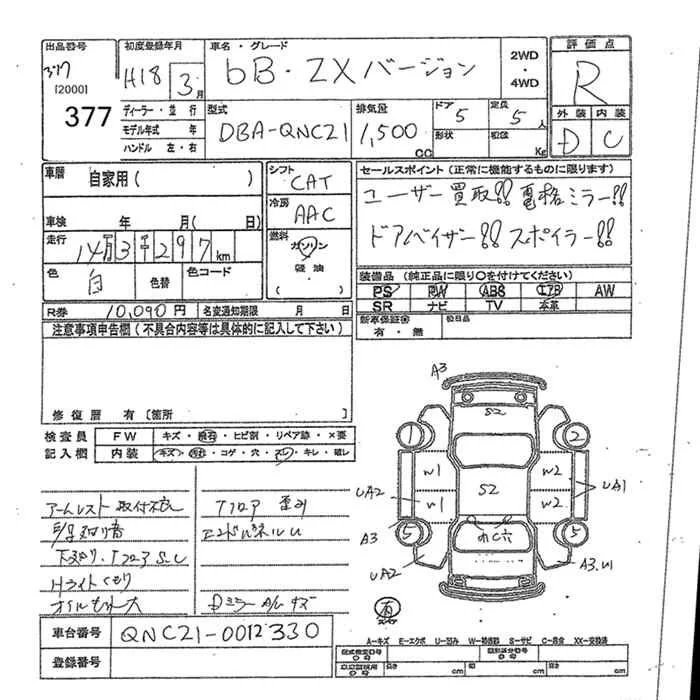 出品番号 初度登録年月 車名・グレード 2WD・4WD 評価点
[2000] H18 3月 bB・ZXバージョン R
377 ディーラー・並行 型式 排気量 ドア 定員 外装 内装
モデル年式 年 DBA-QNC21 1,500 cc 5 5人 D C
ハンドル 左・右 形状 Kg
車歴 自家用( ) シフト CAT セールスポイント(正常に機能するものに限ります)
冷房 AAC ユーザー買取!! 電格ミラー!!
車検 年 月( 日) ドアバイザー!! スポイラー!!
走行 14万3千297km 燃料 ガソリン 軽油
色 白 色替 色コード ( ) 装備品(純正品に限り〇を付けてください)
PS PW ABS エアB AW
R券 10,090円 名変通知期限 月 日 SR ナビ TV 本革
注意事項申告欄(不具合内容等は具体的に記入して下さい) 新車保証書 有・無 後日品
修復歴 有[箇所 ]
検査員 FW キズ・飛石・ヒビ割・リペア跡・×要
記入欄 内装 キズ・汚れ・コゲ・穴・スレ・キレ・破レ
アームレスト 取付不良 Fフロア 歪み
エンドパネルU
下廻り・Fコア S.U
Hライトくもり
Dミラー A/U キズ
車台番号 QNC21-0012330
登録番号
A3
S2
1 2
W1 W2
UA2 S2 UA1
W1 W2
A3 5 5
UA2 A3.U1
A-キズ E-エクボ U-凹み W-補修跡 S-サビ C-腐食 XX-交換済
型式指定番号 類別区分番号
長さ cm 幅 cm 高さ cm